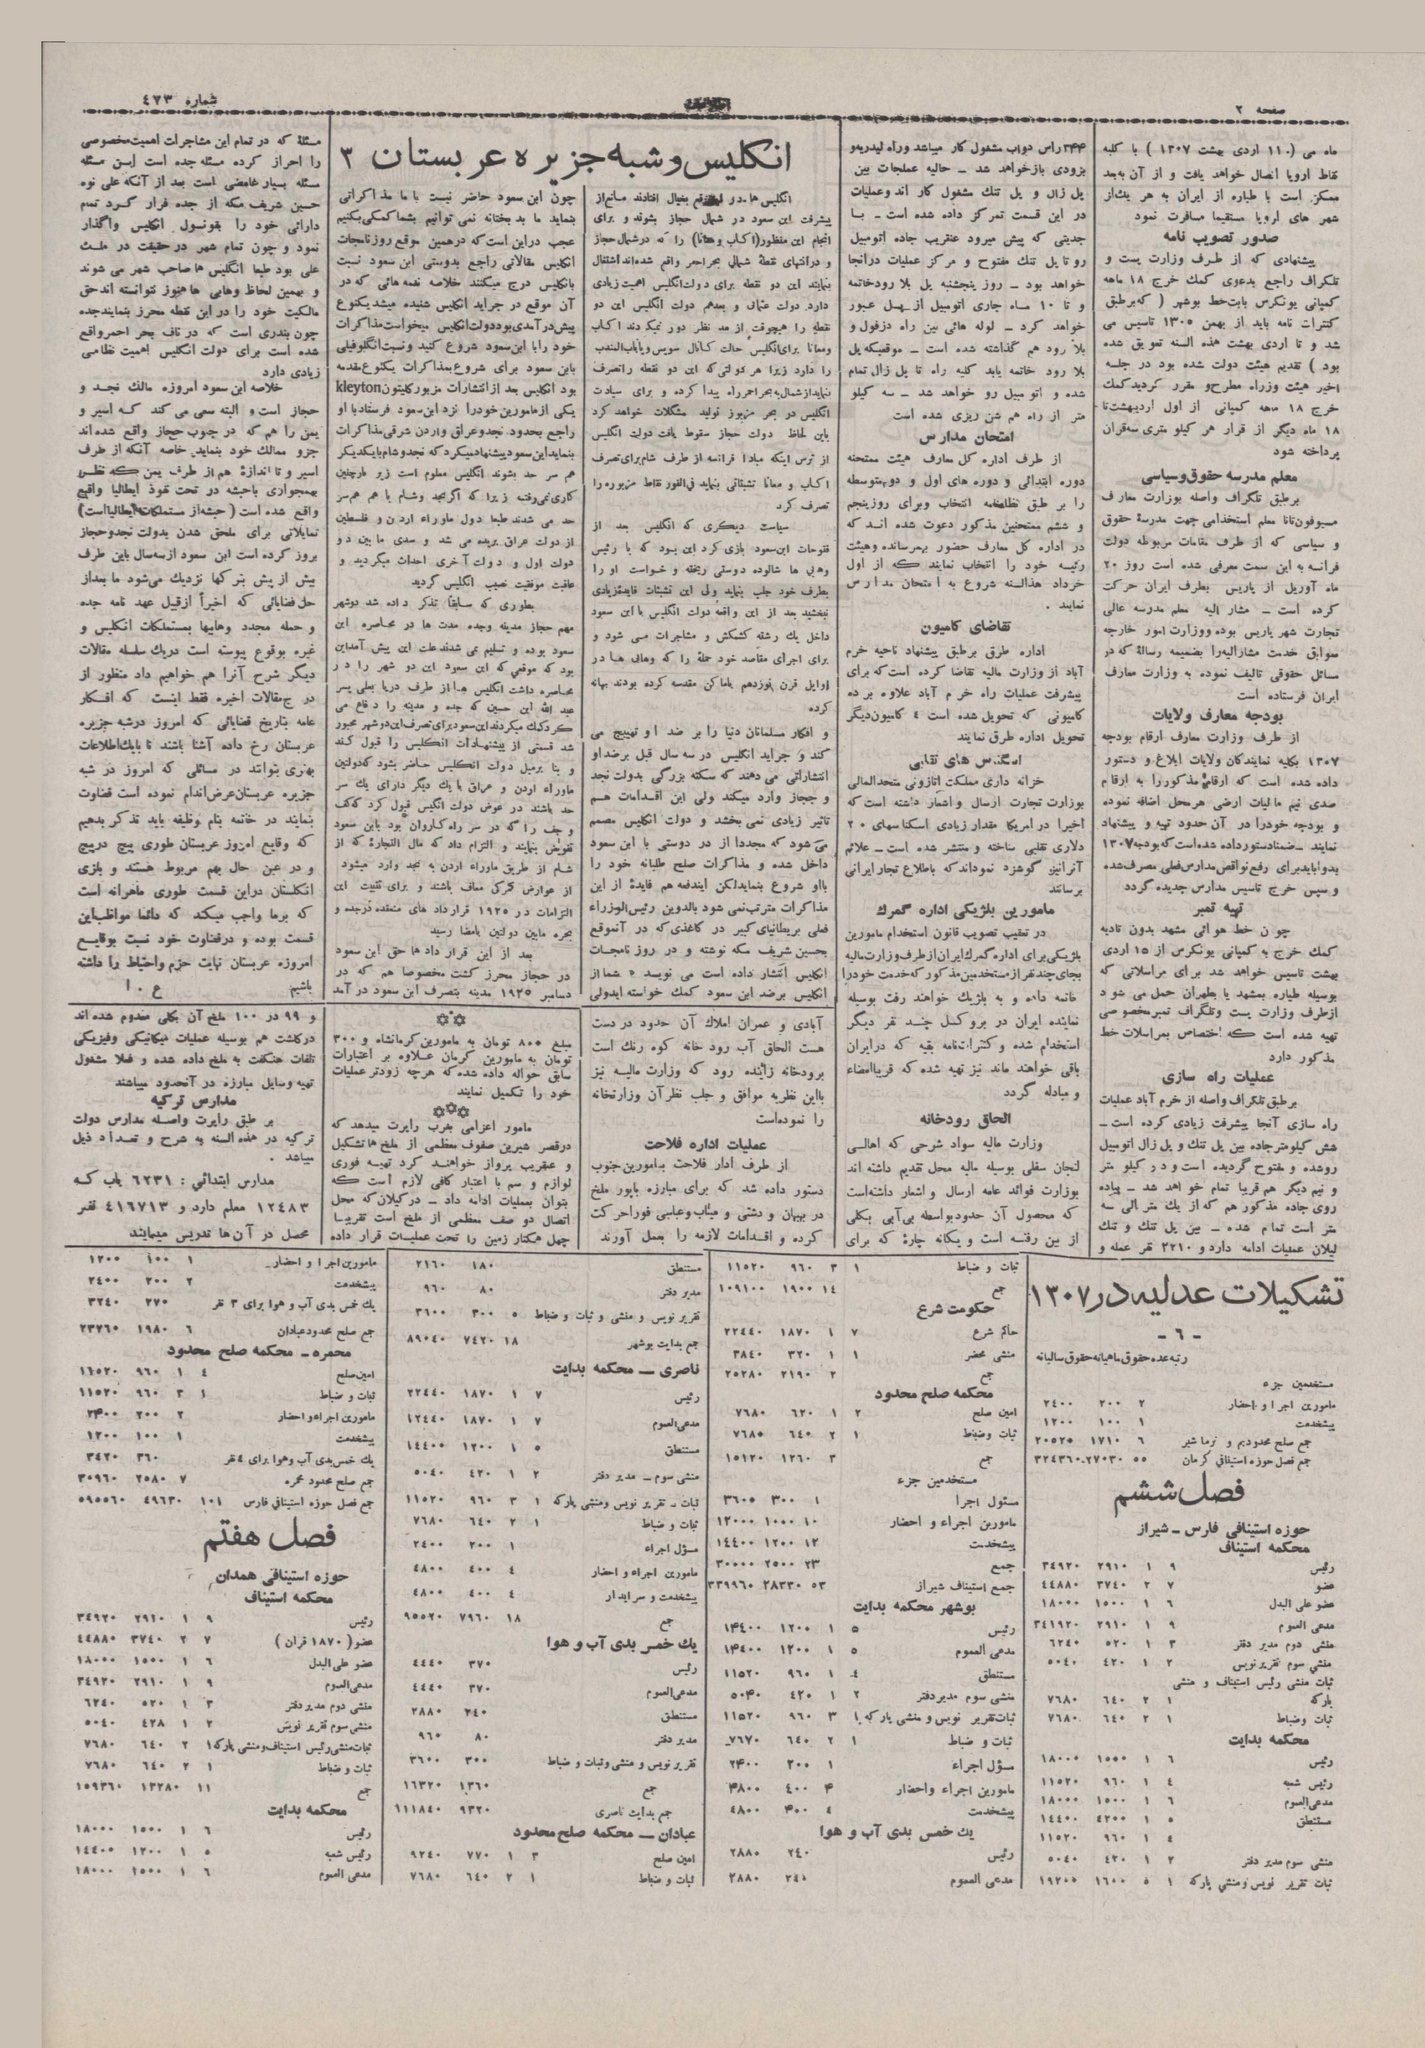 صفحه ۲
اطلاعات
شماره ٤٧٣
ماه می (۱۱۰ اردی بهشت ۱۳۰۷ ) با کلیه
نقاط اروپا اتصال خواهد یافت و از آن به‌بعد
ممکن است با طیاره از ایران به هر یك‌از
شهر های اروپا مستقیما مسافرت نمود
صدور تصویب نامه
پیشنهادی که از طرف وزارت پست و
تلگراف راجع بدعوی کمك خرج ۱۸ ماهه
کمپانی یونکرس بابت‌خط بوشهر ( که‌برطبق
کنترات نامه باید از بهمن ۱۳۰۵ تاسیس می
شد و تا اردی بهشت هذه السنه تعویق شده
بود ) تقدیم هیئت دولت شده بود در جلسه
اخیر هیئت وزراء مطرح‌و مقرر گردید‌کمك
خرج ۱۸ ماهه کمپانی از اول اردیبهشت‌تا
۱۸ ماه دیگر از قرار هر کیلو متری سه‌قران
پرداخته شود
معلم مدرسه حقوق‌وسیاسی
برطبق تلگراف واصله بوزارت معارف
مسیوفون‌تانا معلم استخدامی جهت مدرسهٔ حقوق
و سیاسی که از طرف مقامات مربوطه دولت
فرانسه به این سمت معرفی شده است روز ۲۰
ماه آوریل از پاریس بطرف ایران حرکت
کرده است ــ مشار الیه معلم مدرسه عالی
تجارت شهر پاریس بوده ووزارت امور خارجه
سوابق خدمت مشارالیه‌را بضمیمه رساله‌ که در
مسائل حقوقی تالیف نموده به وزارت معارف
ایران فرستاده است
بودجه معارف ولایات
از طرف وزارت معارف ارقام بودجه
۱۳۰۷ بکلیه نمایندگان ولایات ابلاغ و دستور
داده شده است که ارقام مذکور‌را به ارقام
صدی نیم مالیات ارضی هرمحل اضافه نموده
و بودجه خودرا در آن حدود تهیه و پیشنهاد
نمایند ــ ضمنا‌دستور‌داده شده‌است‌که بودجه ۱۳۰۷
بدوا‌باید‌برای رفع نواقص‌مدارس‌فعلی مصرف‌شده
و سپس خرج تاسیس مدارس جدیده گردد
تهیه تمبر
چون خط هوائی مشهد بدون تادیه
کمك خرج به کمپانی یونکرس از ۱۵ اردی
بهشت تاسیس خواهد شد برای مراسلاتی که
بوسیله طیاره بمشهد یا بطهران حمل می شود
ازطرف وزارت پست وتلگراف تمبر‌مخصوصی
تهیه شده است که اختصاص بمراسلات خط
مذکور دارد
عملیات راه سازی
برطبق‌تلگراف واصله از خرم آباد عملیات
راه سازی آنجا پیشرفت زیادی کرده است ــ
شش کیلومتر‌جاده بین پل تنك و پل زال اتومبیل
روشده و مفتوح گردیده است و در کیلو متر
و نیم دیگر هم قریبا تمام خواهد شد ــ پیاده
روی جاده مذکور هم که از یك متر الی سه
متر است تمام شده ــ بین پل تنك و تنك
لیلان عملیات ادامه دارد و ۲۲۱۰ نفر عمله و
۳۴۴ راس دواب مشغول کار میباشد وراه لیدربه‌و
بزودی بازخواهد شد ــ حالیه عملجات بین
پل زال و پل تنك مشغول کار اند وعملیات
در این قسمت تمرکز داده شده است ــ با
جدیتی که پیش میرود عنقریب جاده اتومبیل
رو تا پل تنك مفتوح و مرکز عملیات درآنجا
خواهد بود ــ روز پنجشنبه پل بلا رود‌خاتمه
و تا ۱۰ ماه جاری اتومبیل از پل عبور
خواهد کرد ــ لوله هائی بین راه دزفول و
بلا رود هم گذاشته شده است ــ موقعیکه پل
بلا رود خاتمه یابد کلیه راه تا پل زال تمام
شده و اتومبیل رو خواهد شد ــ سه کیلو
متر از راه هم شن ریزی شده است
امتحان مدارس
از طرف اداره کل معارف هیئت ممتحنه
دوره ابتدائی و دوره های اول و دوم‌متوسطه
را بر طبق نظامنامه انتخاب وبرای روز‌پنجم
و ششم ممتحنین مذکور دعوت شده اند که
در اداره کل معارف حضور بهمرسانده وهیئت
رئیسه خود را انتخاب نمایند که از اول
خرداد هذالسنه شروع به امتحان مدارس
نمایند .
تقاضای کامیون
اداره طرق برطبق پیشنهاد ناحیه خرم
آباد از وزارت مالیه تقاضا کرده است‌که برای
پیشرفت عملیات راه خرم آباد علاوه بر ده
کامیونی که تحویل شده است ٤ کامیون‌دیگر
تحویل اداره طرق نمایند
اسکناس های تقلبی
خزانه داری مملکت اتازونی متحد‌المالی
بوزارت تجارت ارسال و اشعار داشته است‌که
اخیرا در‌امریکا مقدار زیادی اسکناسهای ۲۰
دلاری تقلبی ساخته و منتشر شده است ــ علائم
آنرا‌نیز گوشزد نموداند که باطلاع تجار ایرانی
برسانند
مامورین بلژیکی اداره گمرك
در تعقیب تصویب قانون استخدام مامورین
بلژیکی برای اداره گمرك ایران از‌طرف‌وزارت مالیه
بجای چند نفر از مستخدمین مذکور که خدمت خود‌را
خاتمه داده و به بلژیك خواهند رفت بوسیله
نماینده ایران در بروکسل چند نفر دیگر
استخدام شده و کنترات‌نامه بقیه که درایران
باقی خواهند ماند نیز تهیه شده که قریبا‌امضاء
و مبادله گردد
الحاق رودخانه
وزارت مالیه سواد شرحی که اهالی
لنجان سفلی بوسیله مالیه محل تقدیم داشته اند
بوزارت فوائد عامه ارسال و اشعار داشته‌است
که محصول آن حدود‌بواسطه بی‌آبی بکلی
از بین رفته است و یگانه چارهٔ که برای
انگلیس و شبه جزیره عربستان ۳
انگلیس ها ــ در این موقع بخیال افتادند مانع‌از
پیشرفت ابن سعود در شمال حجاز بشوند و برای
انجام این منظور(اکساب ومعانا) را که درشمال‌حجاز
و درانتهای نقطهٔ شمالی بحر‌احمر واقع شده‌اند اشتغال
بنمایند این دو نقطه برای دولت‌انگلیس اهمیت‌زیادی
دارد. دولت عثمانی و بعدهم دولت انگلیس این دو
نقطه را هیچوقت از مد نظر دور نمیکردند اکساب
ومعانا برای‌انگلیس حالت کانال سویس وباب‌المندب
را دارد زیرا هر دولتی‌که این دو نقطه را‌تصرف
نماید‌از‌شمال‌به‌بحر‌احمر‌راه پیدا کرده و برای سیادت
انگلیس در بحر مزبور تولید مشکلات خواهد کرد
باین لحاظ دولت حجاز سقوط یافت دولت انگلیس
از ترس اینکه مبادا فرانسه از طرف شام‌برای‌تصرف
اکساب و معانا تشبثاتی بنماید فی‌الفور نقاط مزبوره را
تصرف کرد
سیاست دیگری که انگلیس بعد از
فتوحات ابن‌سعود بازی کرد این بود که با رئیس
وهابی ها شالوده دوستی ریخته و خواست او را
بطرف خود جلب بنماید ولی این تشبثات فایده‌زیادی
نبخشید بعد از این واقعه دولت انگلیس با ابن سعود
داخل یك رشته کشمکش و مشاجرات می شود و
برای اجرای مقاصد خود حملهٔ را که وهابی ها در
اوایل قرن پانزدهم باماکن مقدسه کرده بودند بهانه
کرده
و افکار مسلمانان دنیا را بر ضد او تهییج می
کند و جراید انگلیس در سه سال قبل برضد او
انتشاراتی می دهند که سکته بزرگی بدولت نجد
و حجاز وارد میکند ولی این اقدامات هم
تاثیر زیادی نمی بخشد و دولت انگلیس مصمم
می شود که مجددا از در دوستی با ابن سعود
داخل شده و مذاکرات صلح طلبانه خود را
بااو شروع بنماید‌لکن ایندفعه هم فایدهٔ از این
مذاکرات مترتب‌نمی شود بالدوین رئیس‌الوزراء
فعلی بریطانیای‌کبیر در کاغذی‌که در آنموقع
بحسین شریف مکه نوشته و در روز نامجات
انگلیس انتشار داده است می نویسد « شما از
انگلیس برضد ابن سعود کمك خواسته اید‌ولی
چون ابن سعود حاضر نیست با ما مذاکراتی
بنماید ما بدبختانه نمی توانیم بشما‌کمکی‌بکنیم
عجب در‌این است‌که درهمین موقع روزنامجات
انگلیس مقالاتی راجع بدوستی ابن سعود نسبت
بانگلیس درج میکنند خلاصه نغمه هائی که در
آن موقع در جراید انگلیس شنیده میشد یکنوع
پیش‌درآمدی‌بود‌دولت‌انگلیس میخواست‌مذاکرات
خود را‌با ابن‌سعود شروع کنید ونسبت‌انگلوفیلی
بابن سعود برای شروع‌بمذاکرات یکنوع‌مقدمه
بود انگلیس بعد از انتشارات مزبور‌کلیتون kleyton
یکی از‌مامورین خود‌را نزد ابن‌سعود فرستاد‌با او
راجع بحدود نجد‌وعراق وارد‌ن شرقی مذاکرات
بنماید‌ابن‌سعود‌پیشنهاد میکرد‌که نجد‌وشام با‌یکدیگر
هم سر حد بشوند انگلیس معلوم است زیر بار‌چنین
کاری نمی‌رفته زیرا که اگر‌نجد وشام با هم هم‌سر
حد می شدند طبعا دول ماوراء اردن و فلسطین
از دولت عراق بریده می شد و سدی مابین دو
دولت اول و دولت آخری احداث میگردید و
عاقبت موفقیت نصیب انگلیس گردید
بطوری که سابقاً تذکر داده شد دو‌شهر
مهم حجاز مدینه وجده مدت ها در محاصره ابن
سعود بوده و تسلیم می شدند‌علت این پیش آمد‌این
بود که موقعی که ابن سعود این دو شهر را در
محاصره داشت انگلیس ها از طرف دریا بعلی پسر
عبد الله ابن حسین که جده و مدینه را دفاع می
کرد‌کمك میکردند‌ابن‌سعود‌برای‌تصرف این‌دو‌شهر مجبور
شد قسمتی از پیشنهادات انگلیس را قبول کند
و بنا برمیل دولت انگلیس حاضر بشود که‌دولتین
ماوراء اردن و عراق با یك دیگر دارای یك سر
حد باشند در عوض دولت انگلیس قبول کرد که‌کف
وجف را که در سر راه کاروان بود بابن سعود
تفویض بنماید و التزام داد که مال التجارهٔ که از
شام از طریق ماوراء اردن به نجد وارد میشود
از عوارض گمرکی معاف باشند و برای تثبیت این
التزامات در ۱۹۲۵ قرارداد های منعقده در‌جده و
بحره مابین دولتین بامضا رسید
بعد از این قرار دادها حق ابن سعود
در حجاز محرز گشت مخصوصا هم که در
دسامبر ۱۹۲۵ مدینه بتصرف ابن سعود در آمد
مسئله که در تمام این مشاجرات اهمیت‌مخصوصی
را احراز کرده مسئله جده است این مسئله
مسئله بسیار غامضی است بعد از آنکه علی نوه
حسین شریف مکه از جده فرار کرد تمام
دارائی خود را بقونسول انگلیس واگذار
نمود و چون تمام شهر در حقیقت در ملك
علی بود طبعا انگلیس ها صاحب شهر می شوند
و بهمین لحاظ وهابی ها هنوز نتوانسته اند حق
مالکیت خود را در این نقطه محرز بنمایند‌جده
چون بندری است که در ناف بحر احمر‌واقع
شده است برای دولت انگلیس اهمیت نظامی
زیادی دارد
خلاصه ابن سعود امروزه مالك نجد و
حجاز است و البته سعی می کند که اسیر و
یمن را هم که در جنوب حجاز واقع شده اند
جزو ممالك خود بنماید. خاصه آنکه از طرف
اسیر و تا اندازهٔ هم از طرف یمن که نظر
بهمجواری با‌حبشه در تحت نفوذ ایطالیا واقع
واقع شده است ( حبشه از مستملکات ایطالیا‌است)
تمایلاتی برای ملحق شدن بدولت نجد‌وحجاز
بروز کرده است ابن سعود از‌سه‌سال باین طرف
بیش از پیش بترکها نزدیك می‌شود ما بعد‌از
حل قضایائی که اخیراً از‌قبیل عهد نامه جده
و حمله مجدد وهابیها بمستملکات انگلیس و
غیره بوقوع پیوسته است در‌یك سلسله مقالات
دیگر شرح آنرا هم خواهیم داد منظور از
درج‌مقالات اخیره فقط اینست که افکار
عامه بتاریخ قضایائی که امروز در‌شبه جزیره
عربستان رخ داده آشنا باشند تا با‌یك‌اطلاعات
بهتری بتوانند در مسائلی که امروز در شبه
جزیره عربستان‌عرض‌اندام نموده است قضاوت
بنمایند در خاتمه بنام وظیفه باید تذکر بدهیم
که وقایع امروز عربستان طوری پیچ درپیچ
و در عین حال بهم مربوط هستند و بازی
انگلستان در‌این قسمت طوری ماهرانه است
که برما واجب میکند که دائما مواظب‌این
قسمت بوده و در‌قضاوت خود نسبت بوقایع
امروزه عربستان نهایت حزم واحتیاط را داشته
باشیم
ع . ا
آبادی و عمران املاك آن حدود در دست
هست الحاق آب رود خانه کوه رنك است
برودخانه زاینده رود که وزارت مالیه نیز
بااین نظریه موافق و جلب نظر آن وزارتخانه
را نموده‌است
عملیات اداره فلاحت
از طرف ادار فلاحت بمامورین‌جنوب
دستور داده شد که برای مبارزه باپور ملخ
در بهبهان و دشتی و میناب وعباسی فورا‌حرکت
کرده و اقدامات لازمه را بعمل آورند
مبلغ ۸۰۰ تومان به مامورین کرمانشاه و ۳۰۰
تومان به مامورین کرمان علاوه بر اعتبارات
سابق حواله داده شده که هرچه زودتر عملیات
خود را تکمیل نمایند
مامور اعزامی بغرب راپرت میدهد که
در‌قصر شیرین صفوف معظمی از ملخ ها‌تشکیل
و عنقریب پرواز خواهند کرد تهیه فوری
لوازم و سم با اعتبار کافی لازم است که
بتوان بعملیات ادامه داد ــ در‌گیلان‌که محل
اتصال دو صف معظمی از ملخ است تقریبا
چهل هکتار زمین را تحت عملیات قرار داده
و ۹۹ در ۱۰۰ ملخ آن بکلی معدوم شده اند
در‌کاشت هم بوسیله عملیات میکانیکی و‌فیزیکی
تلفات هنگفت به ملخ داده شده و فعلا مشغول
تهیه وسایل مبارزه در آنحدود میباشند
مدارس ترکیه
بر طبق راپرت واصله مدارس دولت
ترکیه در هذه السنه به شرح و تعداد ذیل
میباشد .
مدارس ابتدائی : ۶۲۳۱ باب که
۱۲٤۸۳ معلم دارد و ٤۱۶۷۱۳ نفر
محصل در آن‌ها تدریس مینمایند
تشکیلات عدلیه در ۱۳۰۷
ــ ۶ ــ
رتبه عده حقوق‌ماهیانه حقوق سالیانه
مستخدمین جزء
مامورین اجرا و احضار ۲ ۲۰۰ ۲٤۰۰
پیشخدمت ۱ ۱۰۰ ۱۲۰۰
جمع صلح محدود‌بم و نرماشیر ۶ ۱۷۱۰ ۲۰۵۲۰
جمع فصل حوزه استینافی کرمان ۵۵ ۲۷۰۳۰ـ۳۲٤۳۶۰
فصل ششم
حوزه استینافی فارس ــ شیراز
محکمه استیناف
رئیس ۹ ۱ ۲۹۱۰ ۳٤۹۲۰
عضو ۷ ۲ ۳۷٤۰ ٤٤۸۸۰
عضو علی البدل ۶ ۱ ۱۵۰۰ ۱۸۰۰۰
مدعی العموم ۹ ۱ ۲۹۱۰ ۳٤۱۹۲۰
منشی دوم مدیر دفتر ۳ ۱ ۵۲۰ ۶۲٤۰
منشی سوم تقریر‌نویس ۲ ۱ ٤۲۰ ۵۰٤۰
ثبات منشی رئیس استیناف و منشی
پارکه ۱ ۲ ۶٤۰ ۷۶۸۰
ثبات وضباط ۱ ۲ ۶٤۰ ۷۶۸۰
محکمه بدایت
رئیس ۶ ۱ ۱۵۰۰ ۱۸۰۰۰
رئیس شعبه ٤ ۱ ۹۶۰ ۱۱۵۲۰
مدعی‌العموم ۶ ۱ ۱۵۰۰ ۱۸۰۰۰
مستنطق ۵ ۱ ٤۲۰۰ ۱٤٤۰۰
٤ ۱ ۹۶۰ ۱۱۵۲۰
منشی سوم مدیر دفتر ۲ ۱ ٤۲۰ ۵۰٤۰
ثبات تقریر نویس و‌منشی پارکه ۱ ۵ ۱۶۰۰ ۱۹۲۰۰
ثبات و ضباط ۱ ۳ ۹۶۰ ۱۱۵۲۰
جمع ۱٤ ۱۹۰۰ ۱۰۹۱۰۰
حکومت شرع
حاکم شرع ۷ ۱ ۱۸۷۰ ۲۲٤٤۰
منشی محضر ۱ ۱ ۳۲۰ ۳۸٤۰
جمع ۲ ۲۱۹۰ ۲۵۲۸۰
محکمه صلح محدود
امین صلح ۲ ۱ ۶۲۰ ۷۶۸۰
ثبات وضباط ۱ ۲ ۶٤۰ ۷۶۸۰
جمع ۳ ۱۲۶۰ ۱۵۱۲۰
مستخدمین جزء
مسئول اجرا ۱ ۳۰۰ ۳۶۰۰
مامورین اجراء و احضار ۱۰ ۱۰۰۰ ۱۲۰۰۰
پیشخدمت ۱۲ ۱۲۰۰ ۱٤٤۰۰
جمع ۲۳ ۲۵۰۰ ۳۰۰۰۰
جمع استیناف شیراز ۵۳ ۲۸۳۳۰ ۳۳۹۹۶۰
بوشهر محکمه بدایت
رئیس ۵ ۱ ۱۲۰۰ ۱۴۴۰۰
مدعی العموم ۵ ۱ ۱۲۰۰ ۱۴۴۰۰
مستنطق ٤ ۱ ۹۶۰ ۱۱۵۲۰
منشی سوم مدیردفتر ۲ ۱ ٤۲۰ ۵۰۴۰
ثبات‌تقریر نویس و منشی پارکه ۱ ۳ ۹۶۰ ۱۱۵۲۰
ثبات و ضباط ۱ ۲ ۶٤۰ ۷۶۷۰
مسؤل اجراء ۱ ۲۰۰ ۲۴۰۰
مامورین اجراء واحضار ۴ ٤۰۰ ۴۸۰۰
پیشخدمت ٤ ۴۰۰ ٤۸۰۰
یك خمس بدی آب و هوا
رئیس ۲٤۰ ۲۸۸۰
مدعی العموم ۲٤۰ ۲۸۸۰
مستنطق ۱۸۰ ۲۱۶۰
مدیر دفتر ۸۰ ۹۶۰
تقریر نویس و منشی و ثبات و ضباط ۵ ۳۰۰ ۳۶۰۰
جمع بدایت بوشهر ۱۸ ۷٤۲۰ ۸۹۰٤۰
ناصری ــ محکمه بدایت
رئیس ۷ ۱ ۱۸۷۰ ۲۲٤٤۰
مدعی‌العموم ۷ ۱ ۱۸۷۰ ۱۲٤٤۰
مستنطق ۵ ۱ ۱۲۰۰ ۱٤٤۰۰
منشی سوم ــ مدیر دفتر ۲ ۱ ٤۲۰ ۵۰٤۰
ثبات ــ تقریر نویس ومنشی پارکه ۱ ۳ ۹۶۰ ۱۱۵۲۰
ثبات و ضباط ۱ ۲ ۶٤۰ ۷۶۸۰
مسؤل اجراء ۱ ۲۰۰ ۲٤۰۰
مامورین اجراء و احضار ٤ ٤۰۰ ٤۸۰۰
پیشخدمت و سرایدار ٤ ٤۰۰ ٤۸۰۰
جمع ۱۸ ۷۹۶۰ ۹۵۵۲۰
یك خمس بدی آب و هوا
رئیس ۳۷۰ ٤٤٤۰
مدعی‌العموم ۳۷۰ ٤٤٤۰
مستنطق ۲۴۰ ۲۸۸۰
مدیر دفتر ۸۰ ۹۶۰
تقریر نویس و منشی وثبات و ضباط ۳۰۰ ۳۶۰۰
جمع ۱۳۶۰ ۱۶۳۲۰
جمع بدایت ناصری ۹۳۲۰ ۱۱۱۸٤۰
عبادان ــ محکمه صلح محدود
امین صلح ۳ ۱ ۷۷۰ ۹۲٤۰
ثبات و ضباط ۱ ۲ ۶٤۰ ۷۶۸۰
مامورین اجرا و احضار ۱ ۱۰۰ ۱۲۰۰
پیشخدمت ۲ ۲۰۰ ۲٤۰۰
یك خمس بدی آب و هوا برای ۳ نفر ۲۷۰ ۳۲٤۰
جمع صلح محدود‌عبادان ۶ ۱۹۸۰ ۲۳۷۶۰
محمره ــ محکمه صلح محدود
امین‌صلح ٤ ۱ ۹۶۰ ۱۱۵۲۰
ثبات و ضباط ۱ ۳ ۹۶۰ ۱۱۵۲۰
مامورین اجراء‌و احضار ۲ ۲۰۰ ۲۴۰۰
پیشخدمت ۱ ۱۰۰ ۱۲۰۰
یك خمس‌بدی آب وهوا برای ٤ نفر ۳۶۰ ۳٤۲۰
جمع صلح محدود محمره ۷ ۲۵۸۰ ۳۰۹۶۰
جمع فصل حوزه استینافی فارس ۱۰۱ ٤۹۶۳۰ ۵۹۵۵۶۰
فصل هفتم
حوزه استینافی همدان
محکمه استیناف
رئیس ۹ ۱ ۲۹۱۰ ۳٤۹۲۰
عضو( ۱۸۷۰ قران ) ۷ ۲ ۳۷٤۰ ٤٤۸۸۰
عضو علی البدل ۶ ۱ ۱۵۰۰ ۱۸۰۰۰
مدعی‌العموم ۹ ۱ ۲۹۱۰ ۳٤۹۲۰
منشی دوم مدیر‌دفتر ۳ ۱ ۵۲۰ ۶۲٤۰
منشی سوم تقریر نویس ۲ ۱ ٤۲۸ ۵۰٤۰
ثبات‌منشی‌رئیس استیناف‌و‌منشی پارکه ۱ ۲ ۶٤۰ ۷۶۸۰
ثبات و ضباط ۱ ۲ ۶٤۰ ۷۶۸۰
جمع ۱۱ ۱۳۲۸۰ ۱۵۹۳۶۰
محکمه بدایت
رئیس ۶ ۱ ۱۵۰۰ ۱۸۰۰۰
رئیس شعبه ۵ ۱ ۱۲۰۰ ۱٤٤۰۰
مدعی العموم ۶ ۱ ۱۵۰۰ ۱۸۰۰۰